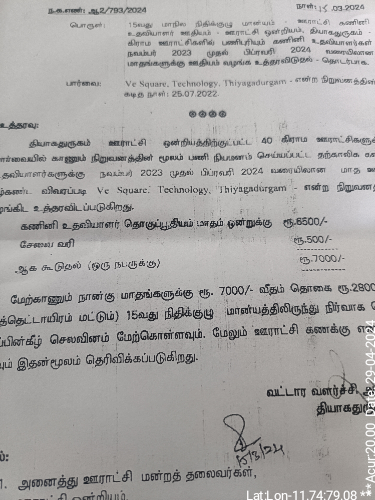 ந.க.எண்: ஆ2/793/2024 நாள்:15.03.2024
பொருள்: 15வது மாநில நிதிக்குழு மான்யம் - ஊராட்சி கணினி
உதவியாளர் ஊதியம் - ஊராட்சி ஒன்றியம், தியாகதுருகம் -
கிராம ஊராட்சிகளில் பணிபுரியும் கணினி உதவியாளர்கள்
நவம்பர் 2023 முதல் பிப்ரவரி 2024 வரையிலான
மாதங்களுக்கு ஊதியம் வழங்க உத்தரவிடுதல் - தொடர்பாக.
பார்வை: Ve Square, Technology, Thiyagadurgam - என்ற நிறுவனத்தின்
கடித நாள்: 25.07.2022.
உத்தரவு:
தியாகதுருகம் ஊராட்சி ஒன்றியத்திற்குட்பட்ட 40 கிராம ஊராட்சிகளுக்
ார்வையில் காணும் நிறுவனத்தின் மூலம் பணி நியமனம் செய்யப்பட்ட தற்காலிக க
உதவியாளர்களுக்கு நவம்பர் 2023 முதல் பிப்ரவரி 2024 வரையிலான மாத ஊ
ழ்கண்ட விவரப்படி Ve Square, Technology, Thiyagadurgam - என்ற நிறுவனத
ழங்கிட உத்தரவிடப்படுகிறது.
கணினி உதவியாளர் தொகுப்பூதியம் மாதம் ஒன்றுக்கு ரூ.6500/-
சேவை வரி ரூ.500/-
ஆக கூடுதல் (ஒரு நபருக்கு) ரூ.7000/-
மேற்காணும் நான்கு மாதங்களுக்கு ரூ. 7000/- வீதம் தொகை ரூ.2800
த்தெட்டாயிரம் மட்டும்) 15வது நிதிக்குழு மான்யத்திலிருந்து நிர்வாக
ப்பின்கீழ் செலவினம் மேற்கொள்ளவும். மேலும் ஊராட்சி கணக்கு எ
ும் இதன்மூலம் தெரிவிக்கப்படுகிறது.
வட்டார வளர்ச்சி அ
தியாகதுரு
15/3/24
ல்:
1. அனைத்து ஊராட்சி மன்றத் தலைவர்கள்,
ஊராட்சி ஒன்றியம்.
Lat:Lon-11.74:79.08 **Acur:20.00 Date:29-04-2024